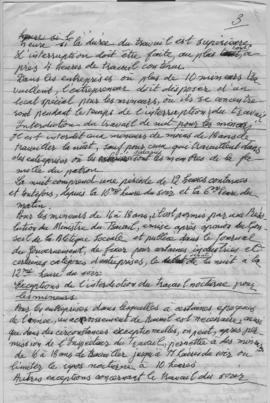 3
heure si la durée du travail est supérieure
L'interruption doit être faite, au plus tard a-
près 4 heures de travail continu
Dans les entreprises où plus de 10 mineurs tra-
vaillent, l'entrepreneur doit disposer d'un
local spécial pour les mineurs, où ils se concentre-
ront pendant le temps de l'interruption du travail
Interdiction du travail de nuit pour les mineurs
Il est interdit aux mineurs de moins de 18 ans de
travailler la nuit, sauf pour ceux qui travaillent dans
des entreprises où les membres de la fa-
mille du patron.
La nuit comprend une période de 12 heures continues
et entières, depuis la heure du soir et la 6ème heure du
matin.
Pour les mineurs de 16 à 18 ans, il est permis par une Réso-
lution du Ministre du Travail, émise après du Con-
seil de la Politique Sociale et publiée dans le Journal
du Gouvernement de fixer pour certaines et
certaines catégories d'entreprises, le de la nuit à la
12ème heure du soir.
Exceptions de l'interdiction du travail nocturne, pour
les mineurs.
Pour les entreprises dans lesquelles à certaines époques
de l'année, un de travail est nécessaire, ainsi
que dans des circonstances exceptionnelles, on peut, après per-
mission de l'Inspection du Travail, permettre à des mineurs
de 16 à 18 ans de travailler jusqu'à heures du soir ou
limiter le repos nocturne à 10 heures.
Autres exceptions concernant le travail du soir